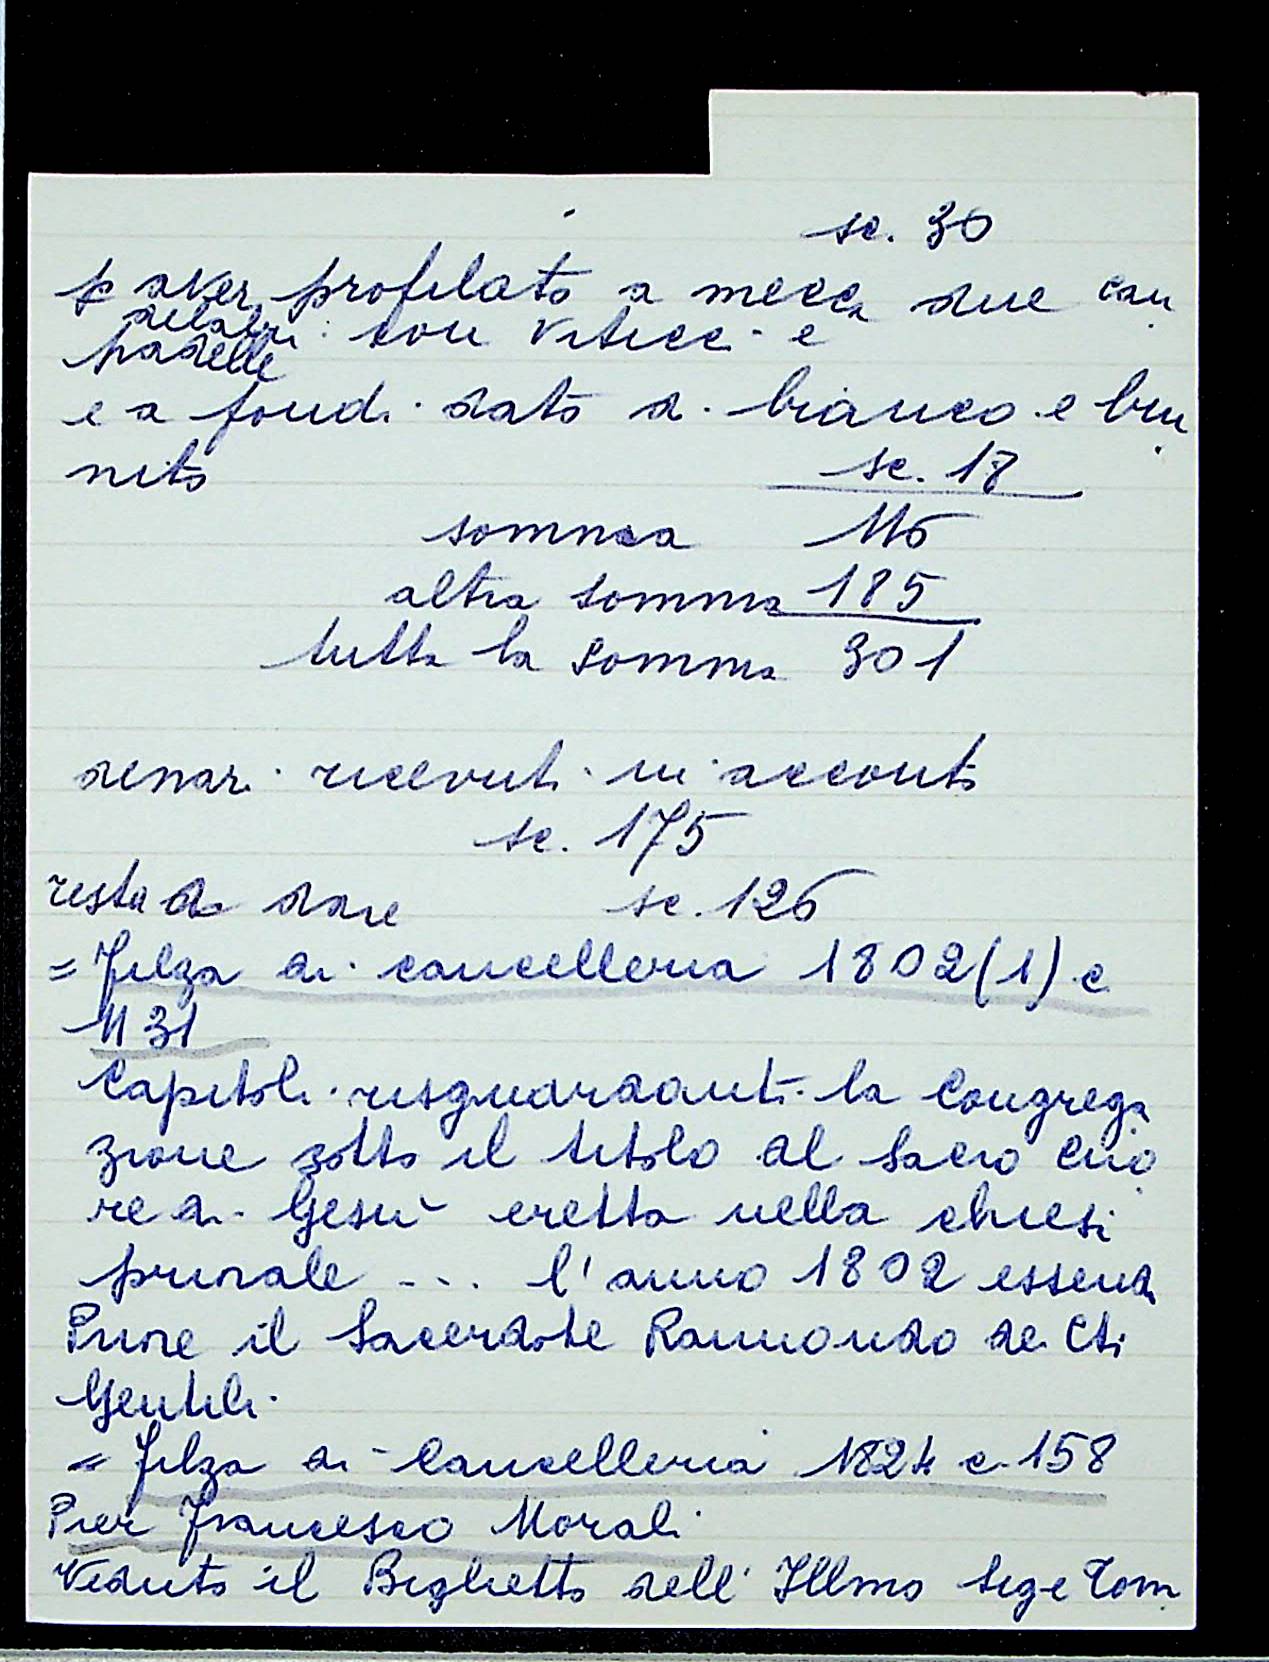 sc. 30
p aver profilato a mecca due can
delabri con viticci e
padelle
e a fondi dato di bianco e bru
nito sc. 18
somma 116
altra somma 185
tutta la somma 301
denari ricevuti in acconto
sc. 175
resta da dare sc. 126
= Filza di cancelleria 1802(1) c
1131
Capitoli risguardanti la Congrega
zione sotto il titolo al Sacro Cuo
re di Gesù eretta nella chiesa
priorale --. l'anno 1802 essend
Priore il Sacerdote Raimondo dei Cti
Gentili
= Filza di Cancelleria 1824 c. 158
Pier Francesco Morali
Veduto il Biglietto dell' Illmo Sige Tom